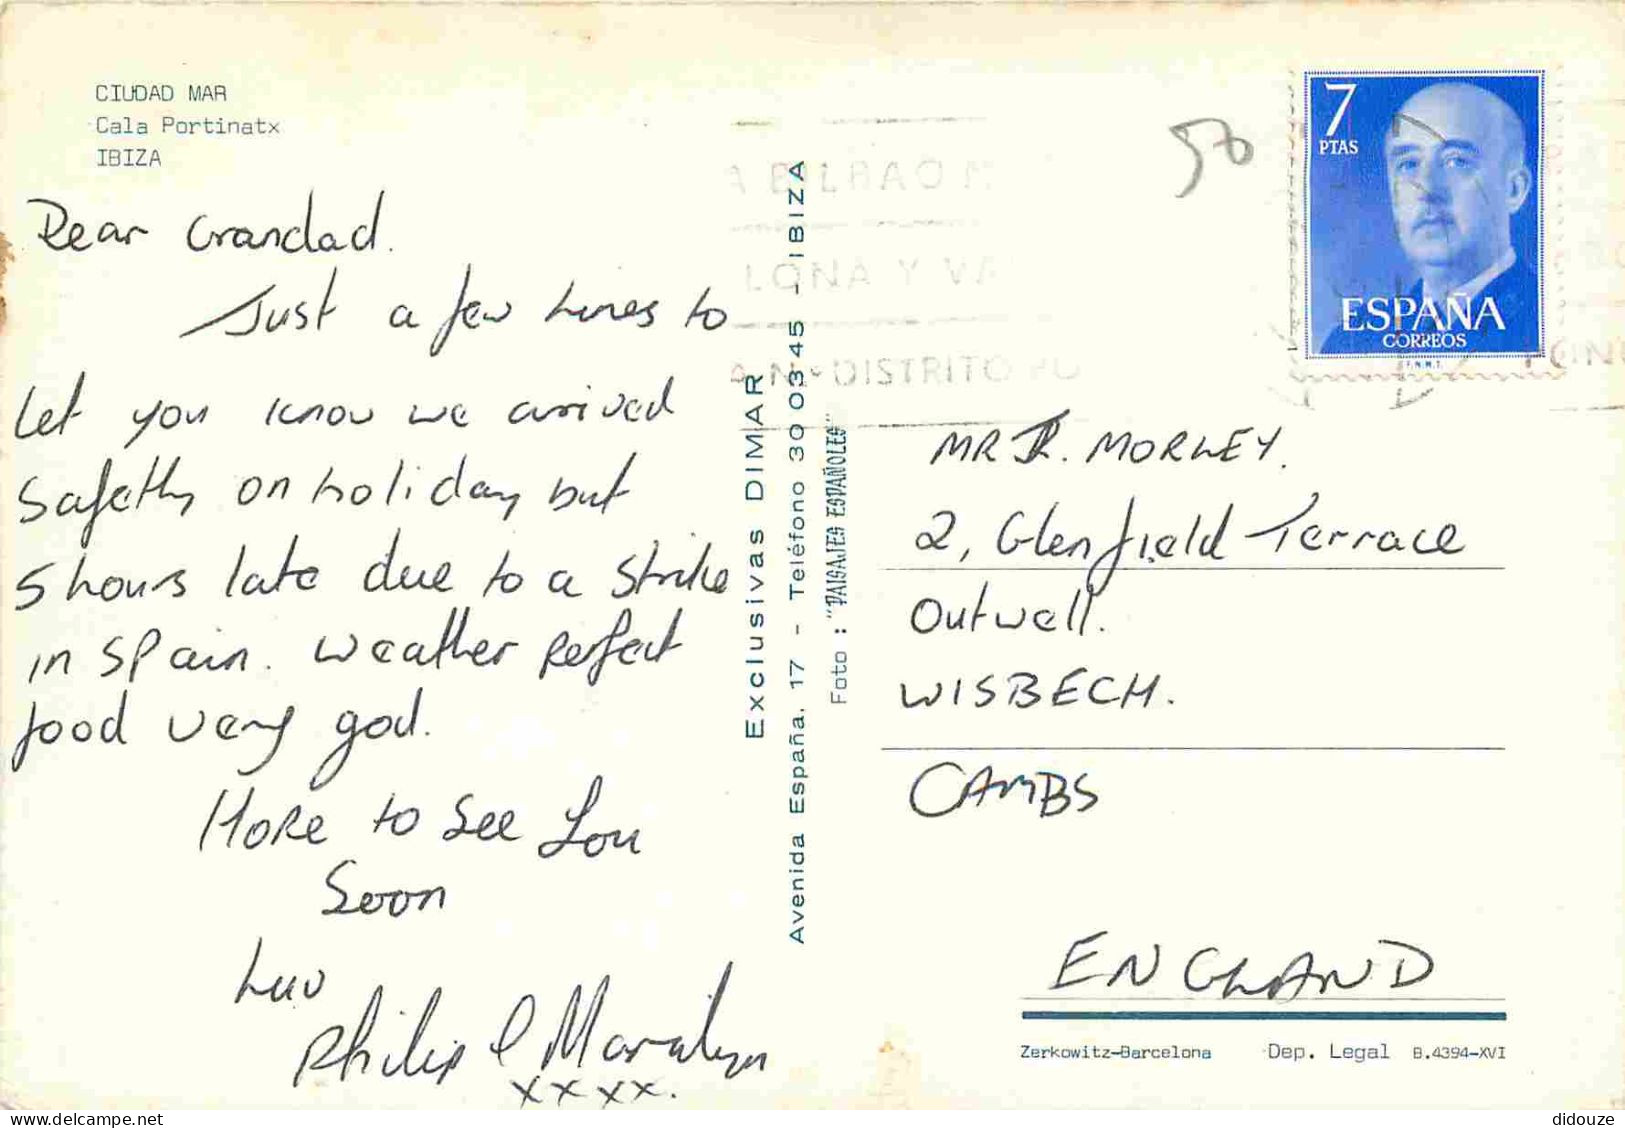 CIUDAD MAR
Cala Portinatx
IBIZA
Dear Grandad.
Just a few lines to
let you know we arrived
Safetly on holiday but
5 hours late due to a strike
in Spain. Weather Perfect
food very god.
HOPE to See You
Soon
Luv
Philip & Maralyn
xxxx.
Exclusivas DIMAR
Avenida España, 17 - Teléfono 30 03 45 - IBIZA
Foto : "PAISAJES ESPAÑOLES"
A BILBAO
LONA Y VA
DISTRITO PO
50
7
PTAS
ESPAÑA
CORREOS
F.N.M.T.
MR R. MORLEY.
2, Glenfield Terrace
Outwell.
WISBECH.
CAMBS
ENGLAND
Zerkowitz-Barcelona Dep. Legal B.4394-XVI
didouze